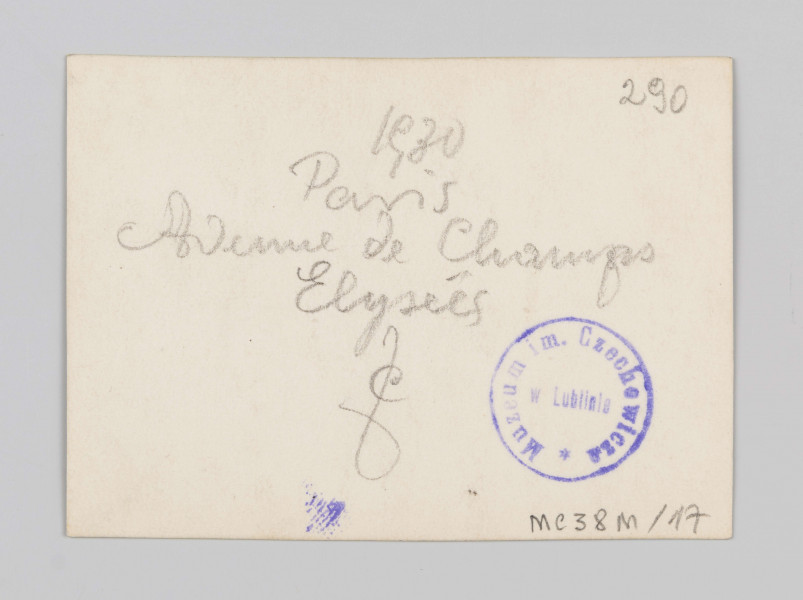 290
1930
Paris
Avenue de Champs
Elyseés
JC
Muzeum im. Czechowicza
w Lublinie
*
MC38M/17